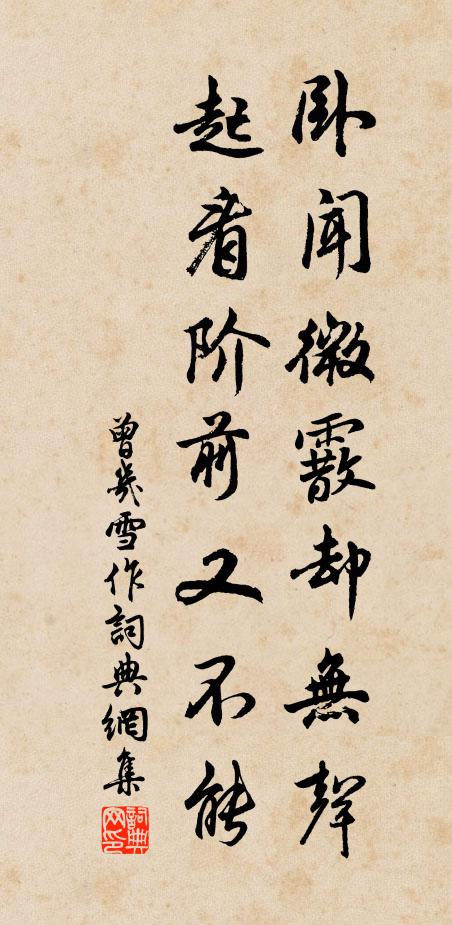 卧闻微霰却無聲
起看阶前又不能
曾幾雪作詞典網集
詞典网印